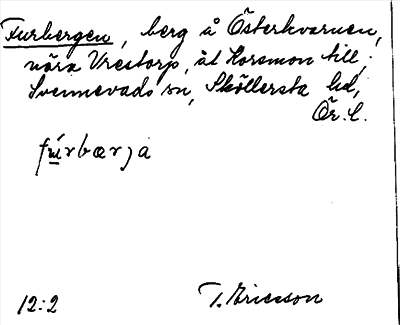 Furbergen, berg å Österkvarnen,
nära Vrestorp, åt Horsmon till;
Svennevads sn, Sköllersta hd,
Ör. l.
fúrbærja
12:2 T. Ericsson